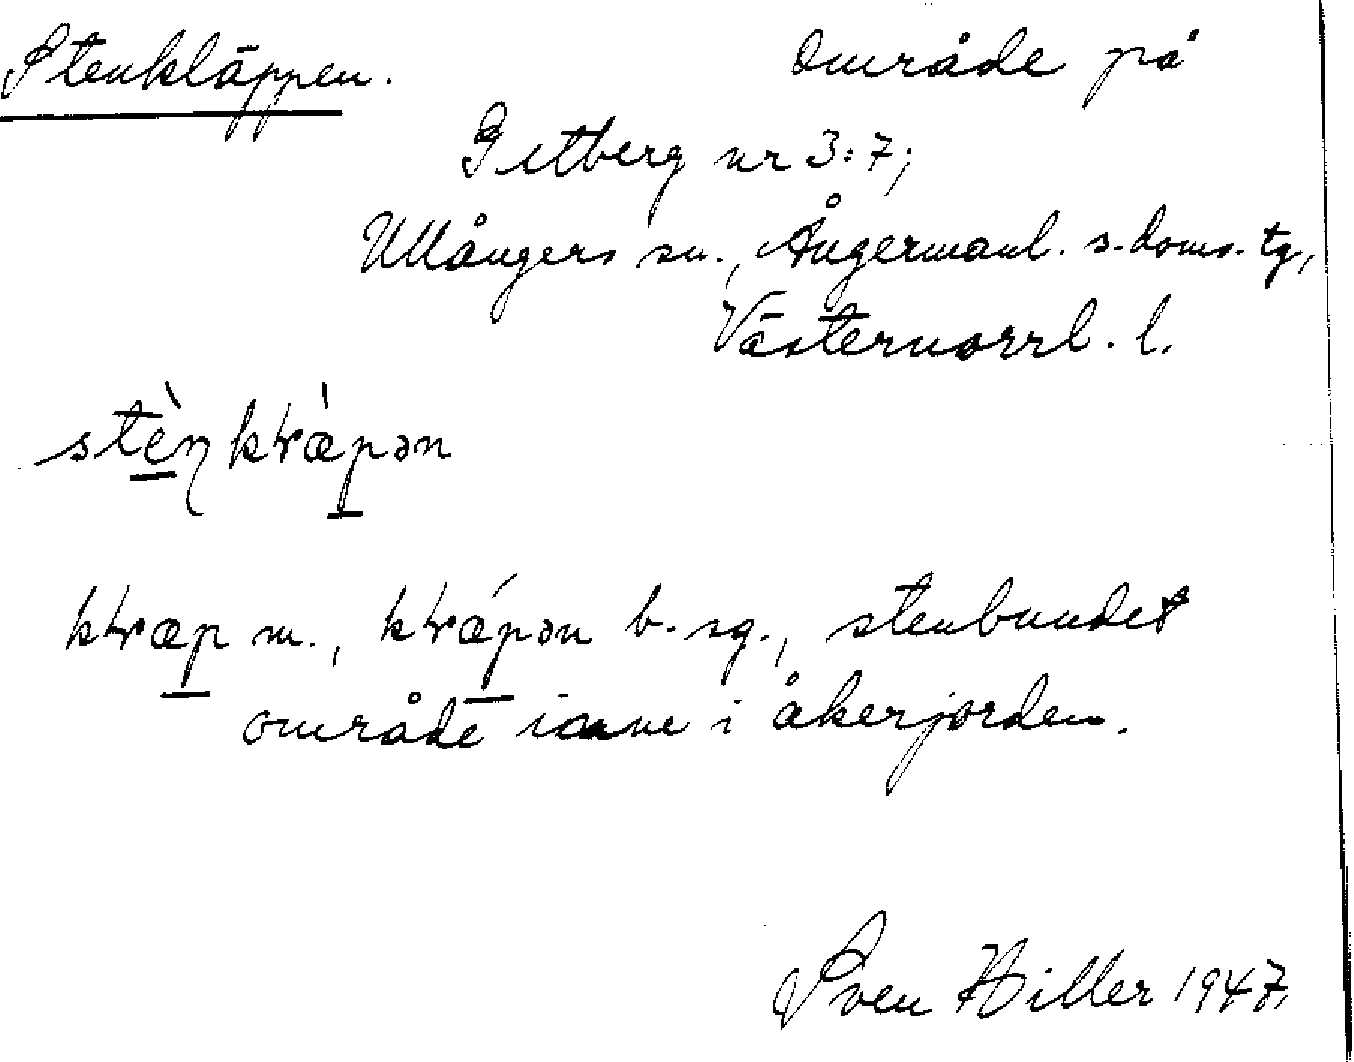 Stenkläppen. Område på
Getberg nr 3:7;
Ullångers sn., Ångermanl. s. doms. tg,
Västernorrl. l.
m., b. sg., stenbundet
område inne i åkerjorden.
Sven Hiller 1947.